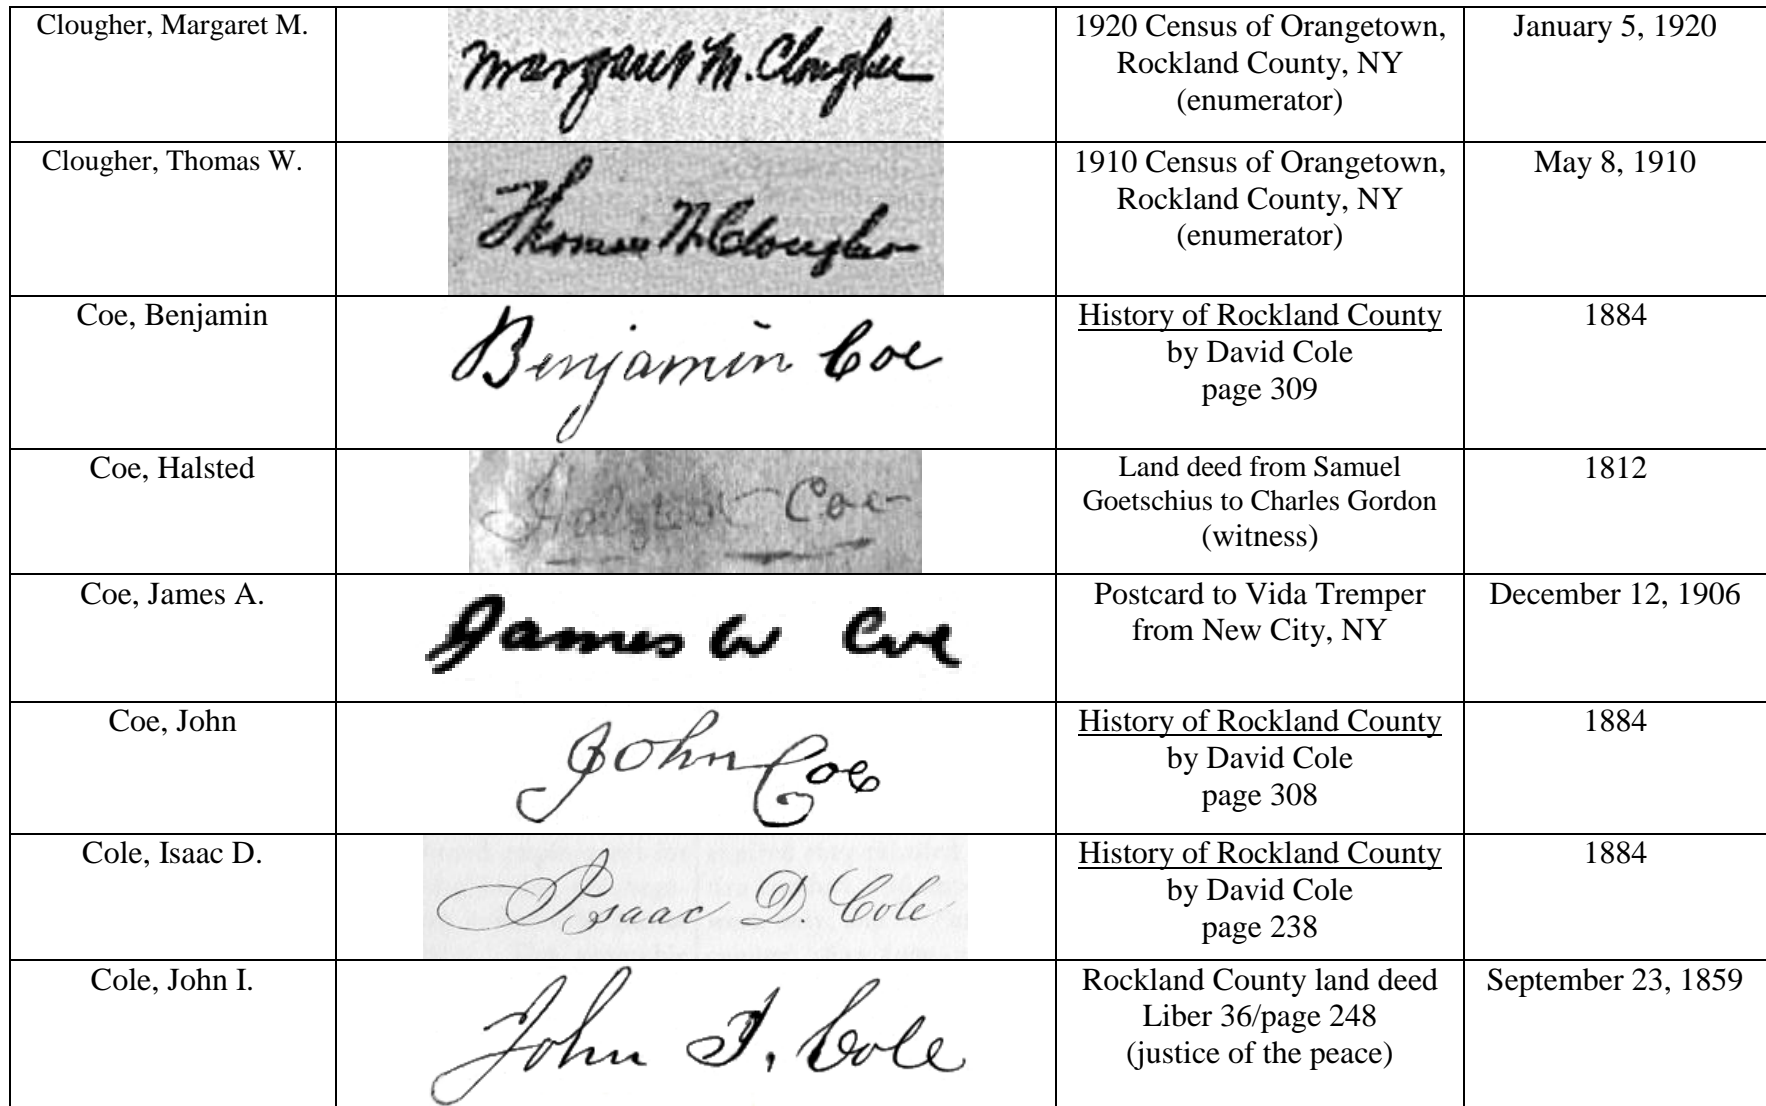 Clougher, Margaret M.
Margaret M. Clougher
1920 Census of Orangetown,
Rockland County, NY
(enumerator)
January 5, 1920
Clougher, Thomas W.
Thomas W. Clougher
1910 Census of Orangetown,
Rockland County, NY
(enumerator)
May 8, 1910
Coe, Benjamin
Benjamin Coe
History of Rockland County
by David Cole
page 309
1884
Coe, Halsted
Halsted Coe
Land deed from Samuel
Goetschius to Charles Gordon
(witness)
1812
Coe, James A.
James W Coe
Postcard to Vida Tremper
from New City, NY
December 12, 1906
Coe, John
John Coe
History of Rockland County
by David Cole
page 308
1884
Cole, Isaac D.
Isaac D. Cole
History of Rockland County
by David Cole
page 238
1884
Cole, John I.
John I. Cole
Rockland County land deed
Liber 36/page 248
(justice of the peace)
September 23, 1859